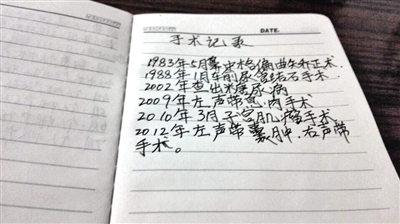 DATE.
手术记录
1983年5月鼻中格偏曲矫正术.
1988年1月尿管结石手术
2002年查出糖尿病
2009年左声带息肉手术
2010年3月子宫肌瘤手术
2012年左声带囊肿.右声带
手术。